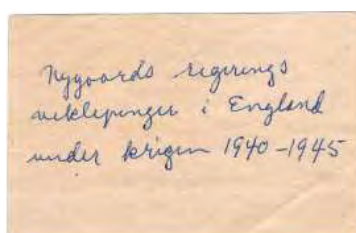 Nygaards regjerings
i England
under krigen 1940-1945